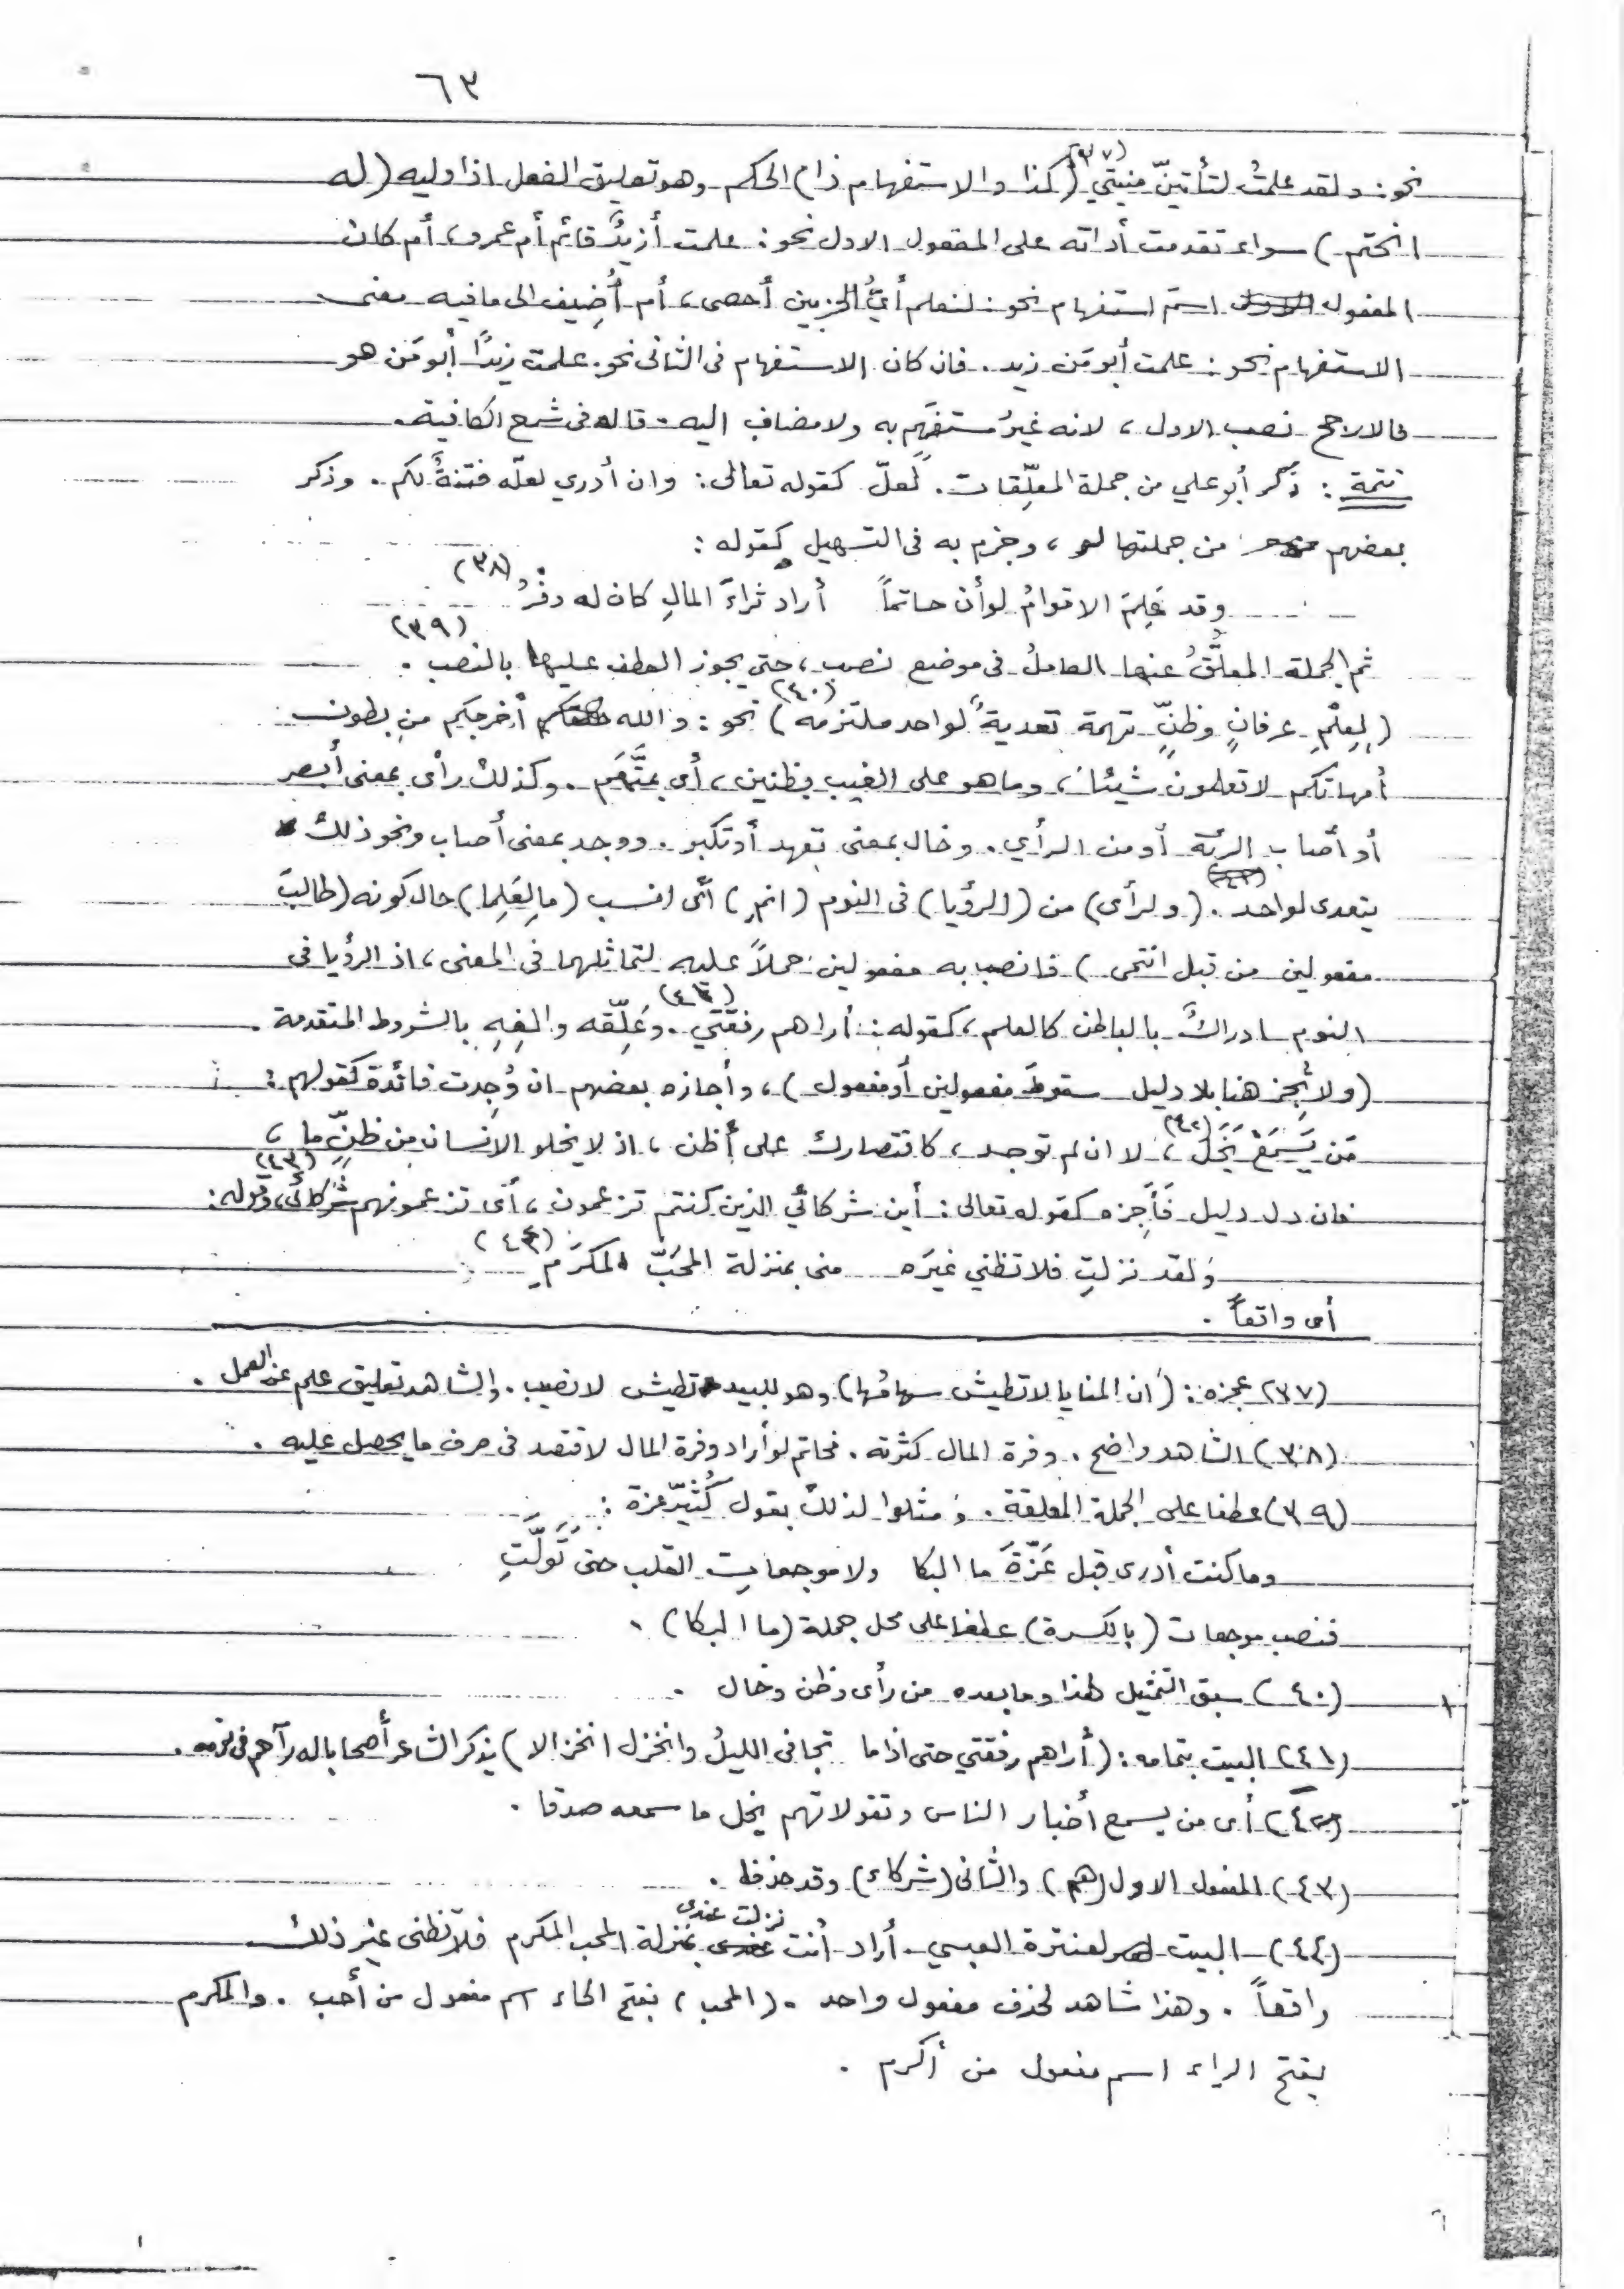 ٦٣
نحو: ولقد علمتُ لتأتينّ منيتي (٣٧) (كذا والاستفهام ذا) الحكم وهو تعليق الفعل اذا وليه (له
انحتم) سواء تقدمت أداته على المفعول الاول نحو: علمت أزيدٌ قائم أم عمرو، أم كان
المفعول اسمَ استفهام نحو: لنعلم أيُّ الحزبين أحصى، أم أُضِيف الى ما فيه معنى
الاستفهام نحو: علمت أبو مَن زيد. فان كان الاستفهام فى الثانى نحو: علمت زيدًا أبو مَن هو
فالارجح نصب الاول، لانه غيرُ مستفهَم به ولا مضاف اليه. قاله فى شرح الكافية.
تتمة: ذكر أبو علي من جملة المعلِّقات. لعلّ كقوله تعالى: وان أدري لعلّه فتنةٌ لكم. وذكر
بعضهم من جملتها لو، وجزم به فى التسهيل كقوله:
وقد عَلِمَ الاقوامُ لو أن حاتماً أراد ثراءَ المالِ كان له وفْرُ (٣٨)
ثم الجملة المعلَّقُ عنها العاملُ فى موضع نصب، حتى يجوز العطف عليها بالنصب. (٣٩)
(لِعِلْمِ عرفانٍ وظنٍّ تهمة تعديةٌ لواحد ملتزمه) (٤٠) نحو: والله أخرجكم من بطون
أمهاتكم لا تعلمون شيئا، وما هو على الغيب بظنين، أى بمتَّهَم. وكذلك رأى بمعنى أبصر
أو أصاب الرئة أو من الرأي. وخال بمعنى تعهد أو تكبر. ووجد بمعنى أصاب ونحو ذلك
يتعدى لواحد. (ولرأى) من (الرؤيا) فى النوم (انمِ) أى انسب (ما لِعَلِما) حال كونه (طالبَ
مفعولين من قبل انتمى) فانصب به مفعولين حملاً عليه لتماثلهما فى المعنى، اذ الرؤيا فى
النوم ادراكٌ بالباطن كالعلم، كقوله: أراهم رفقتي (٤١). وعَلِّقه والغِهِ بالشروط المتقدمة.
(ولا تُجِز هنا بلا دليل سقوطَ مفعولين أو مفعول)، وأجازه بعضهم ان وُجِدت فائدة كقولهم:
مَن يَسمَعْ يَخَلْ (٤٢)، لا ان لم توجد، كاقتصارك على أظن، اذ لا يخلو الانسان من ظنٍّ ما،
فان دل دليل فَأَجِزه كقوله تعالى: أين شركائي الذين كنتم تزعمون، أى تزعمونهم شركائى (٤٣)، وقوله:
ولقد نزلتِ فلا تظني غيرَه منى بمنزلة المحَبّ المكرَمِ (٤٤)
أى واقعاً.
(٣٧) عجزه: (ان المنايا لا تطيش سهامُها) وهو للبيد تطيش لا تصيب. والشاهد تعليق علم عن العمل.
(٣٨) الشاهد واضح. وفرة المال كثرته. فحاتم لو أراد وفرة المال لاقتصد فى صرف ما يحصل عليه.
(٣٩) عطفا على الجملة المعلقة. ومثلوا لذلك بقول كُثَيّر عزة:
وما كنت أدرى قبل عَزّةَ ما البكا ولا موجعاتِ القلب حتى تَوَلَّتِ
فنصب موجعات (بالكسرة) عطفا على محل جملة (ما البكا).
(٤٠) سبق التمثيل لهذا وما بعده من رأى وظن وخال.
(٤١) البيت بتمامه: (أراهم رفقتي حتى اذا ما تجافى الليلُ وانخزل انخزالا) يذكر الشاعر أصحابا له رآهم فى نومه.
(٤٢) أى من يسمع أخبار الناس وتقولاتهم يخل ما سمعه صدقا.
(٤٣) المفعول الاول (هم) والثانى (شركاء) وقد حذفا.
(٤٤) البيت لعنترة العبسي. أراد أنت نزلت عندى بمنزلة المحب المكرم فلا تظنى غير ذلك
واقعاً. وهذا شاهد لحذف مفعول واحد. (المحب) بفتح الحاء اسم مفعول من أحب. والمكرم
بفتح الراء اسم مفعول من أكرم.